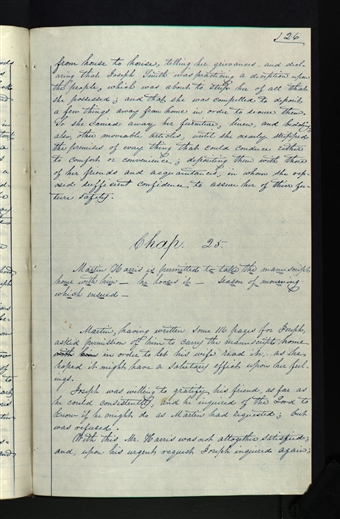 126
from house to house, telling her grievances and decl-
aring that Joseph Smith was practicing a deception upon
the people, which was about to strip her of all that
she possessed; and that she was compelled to deposit
a few things away from home in order to secure them.
So she carried away her furniture, linen, and bedding;
also, other moveable articles, until she nearly stripped
the premises of every thing that could conduce either
to comfort or convenience; depositing them with those
of her friends and acquaintances, in whom she rep-
osed sufficient confidence, to assure her of their fu-
ture safety.
Chap. 25.
Martin Harris is permitted to take the manuscript
home with him — he looses it — Season of mourning
which ensued —
Martin, having written some 116 pages for Joseph,
asked permission of him to carry the manuscript home
with him in order to let his wife read it, as he
hoped it might have a salutary effect upon her feel-
ings.
Joseph was willing to gratify his friend as far as
he could consistently, and he inquired of the Lord to
know if he might do as Martin had requested; but
was refused.
With this Mr. Harris was not altogether satisfied;
and, upon his urgent request Joseph inquired again;